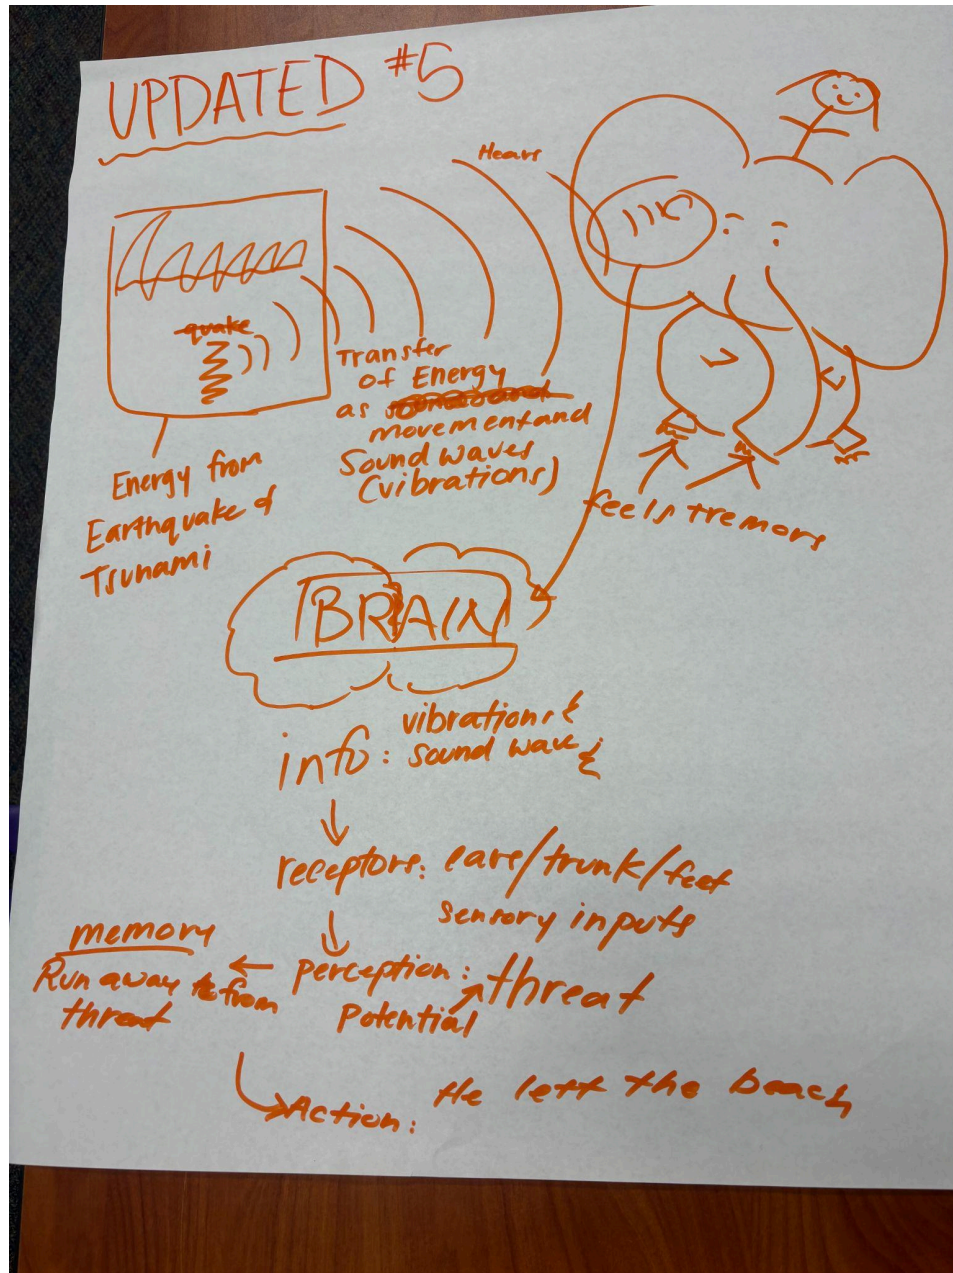 UPDATED #5
Hears
quake
Transfer
of Energy
as
movement and
Sound waves
(vibrations)
Energy from
Earthquake &
Tsunami
feels tremors
BRAIN
info: vibration &
sound wave
receptors: ears/trunk/feet
sensory inputs
memory
perception: threat
Potential
Run away from
threat
Action: He left the beach